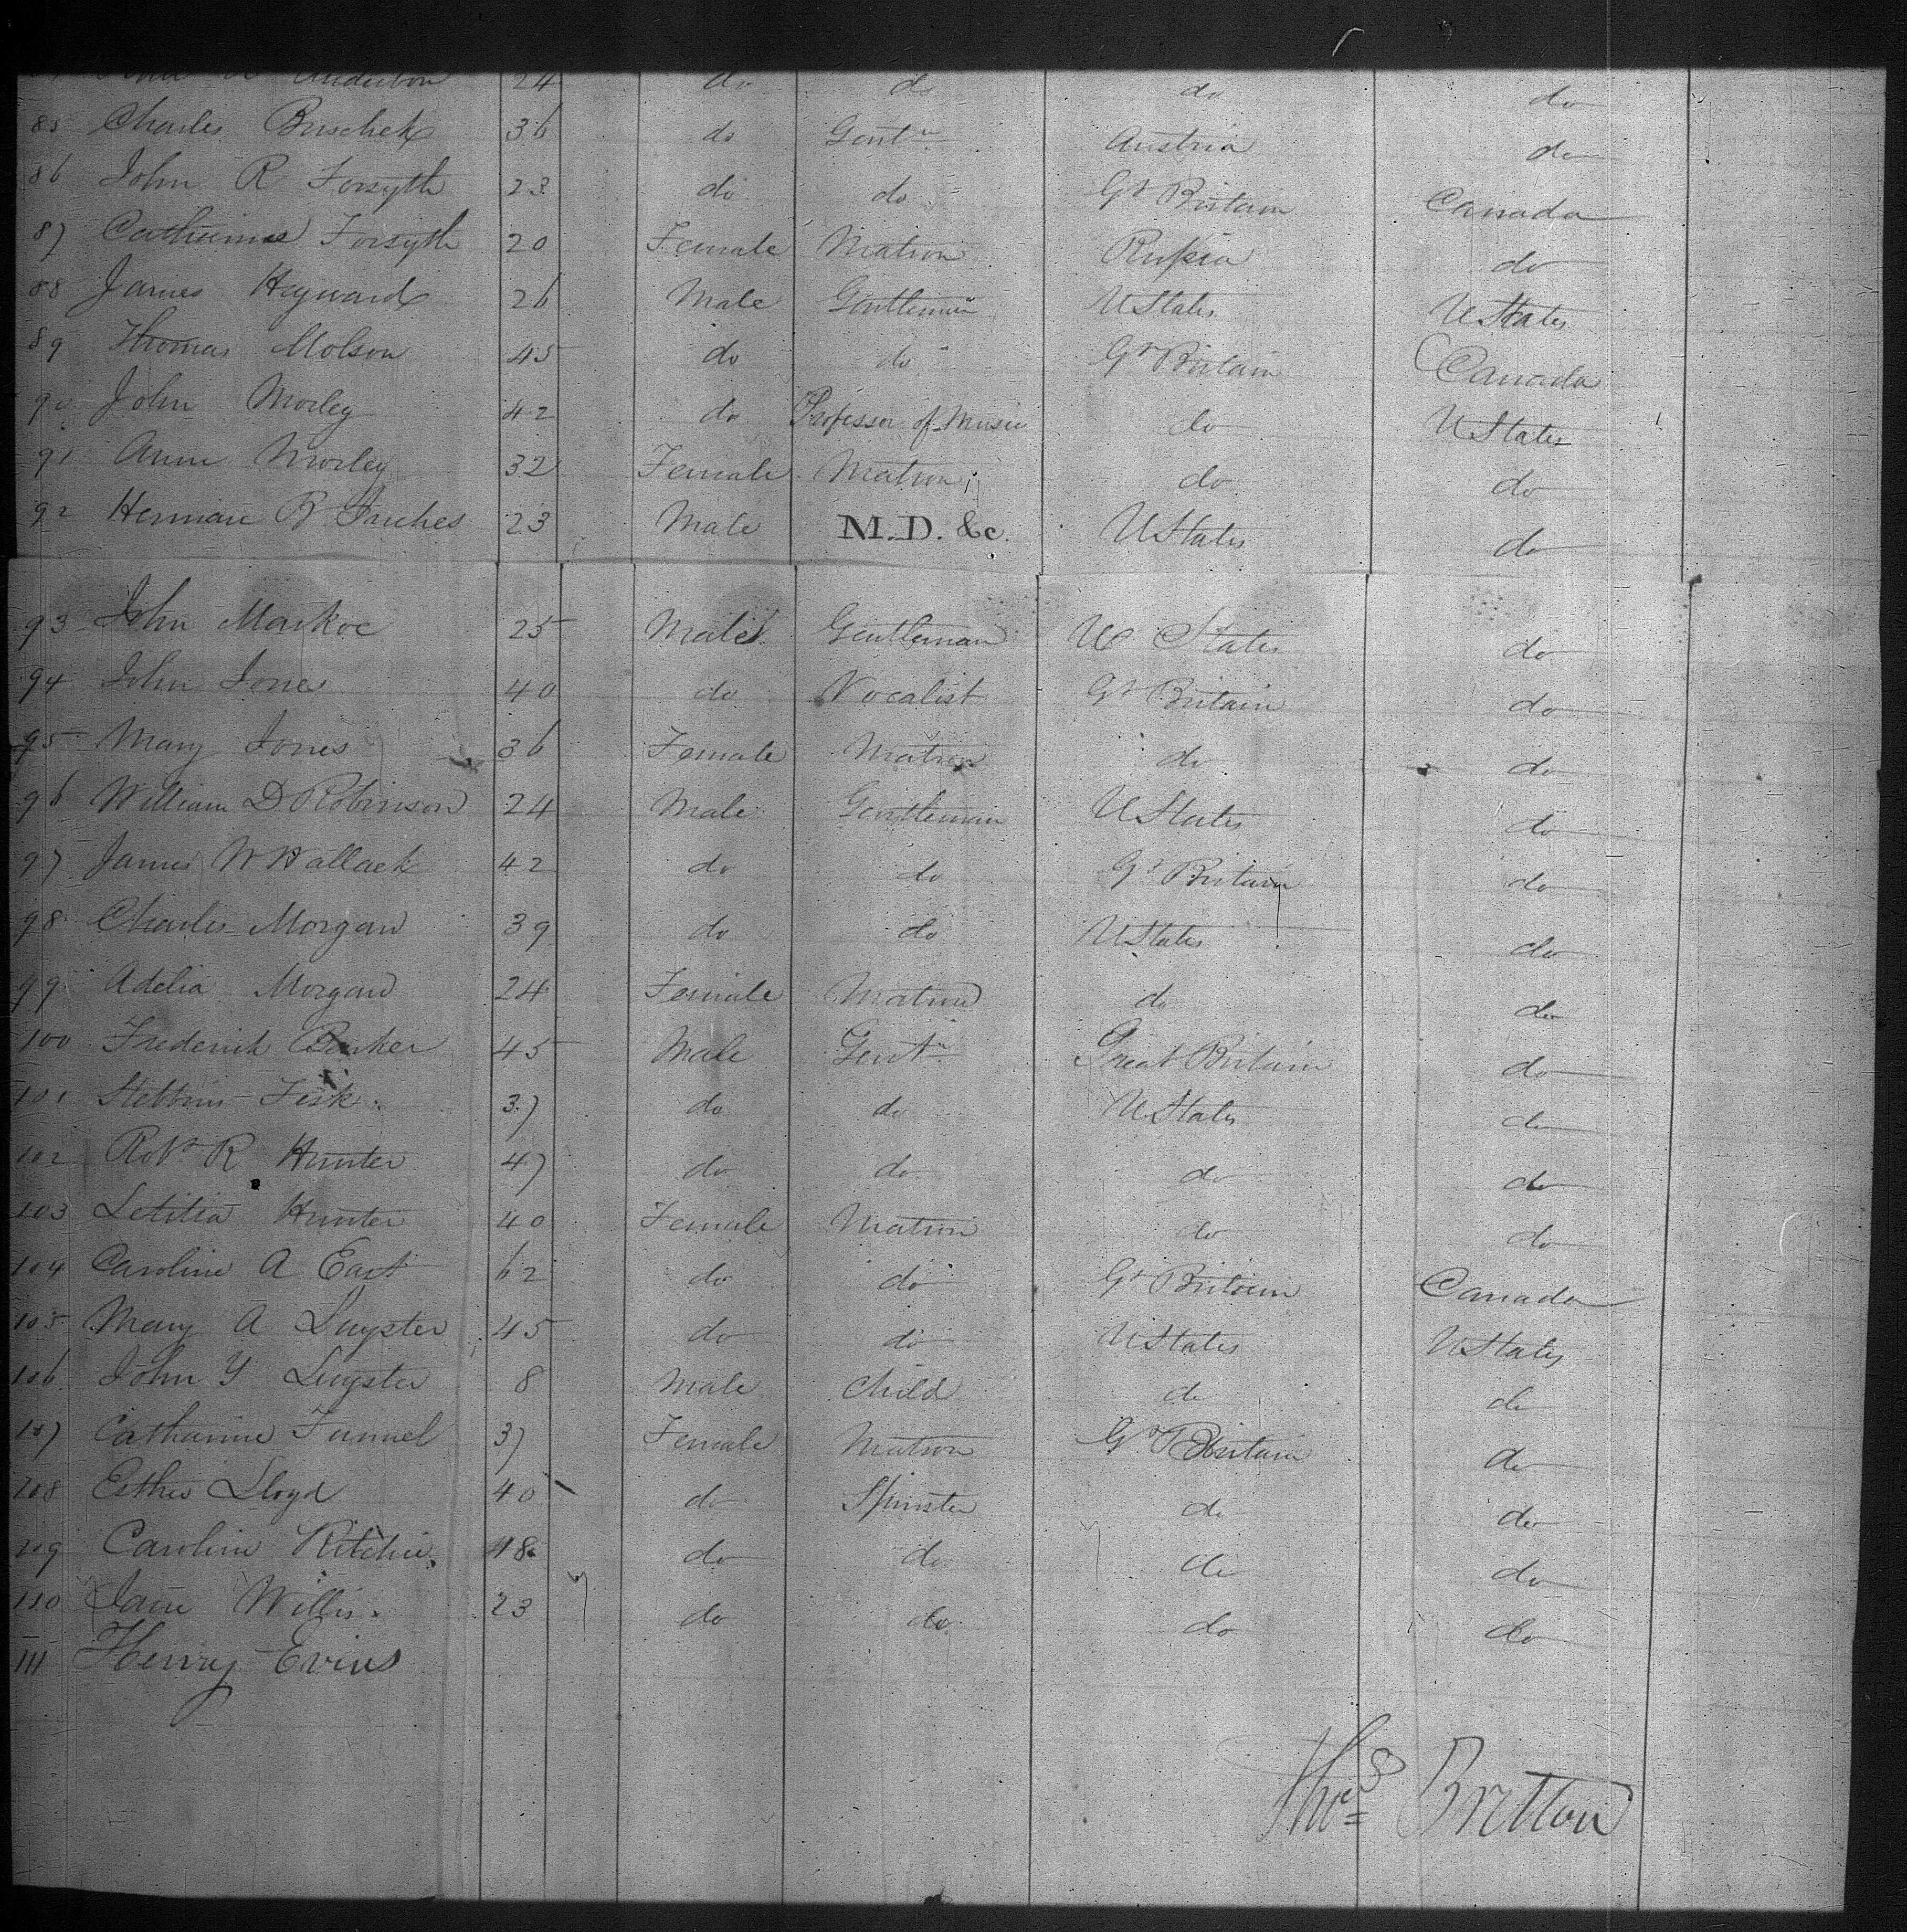 24 do do do do
85 Charles Buschek 36 do Gentn Austria do
86 John R Forsyth 23 do do Gt Britain Canada
87 Catherine Forsyth 20 Female Matron Russia do
88 James Heyward 26 Male Gentleman U States U States
89 Thomas Molson 45 do do Gt Britain Canada
90 John Morley 42 do Professor of Music do U States
91 Ann Morley 32 Female Matron do do
92 Herman B Inches 23 Male M.D. &c. U States do
93 John Markoe 25 Male Gentleman U States do
94 John Jones 40 do Vocalist Gt Britain do
95 Mary Jones 36 Female Matron do do
96 William D Robinson 24 Male Gentleman U States do
97 James W Wallack 42 do do Gt Britain do
98 Charles Morgan 39 do do U States do
99 Adelia Morgan 24 Female Matron do do
100 Frederick Barker 45 Male Gentn Great Britain do
101 Stettins Fisk 37 do do U States do
102 Robt R Hunter 47 do do do do
103 Letitia Hunter 40 Female Matron do do
104 Caroline A East 62 do do Gt Britain Canada
105 Mary A Luyster 45 do do U States U States
106 John Y Luyster 8 Male Child do do
107 Catharine Funnel 37 Female Matron Gt Britain do
108 Esther Lloyd 40 do Spinster do do
109 Caroline Ritchie 18 do do do do
110 Jane Willis 23 do do do do
111 Henry Evins
Thos Britton